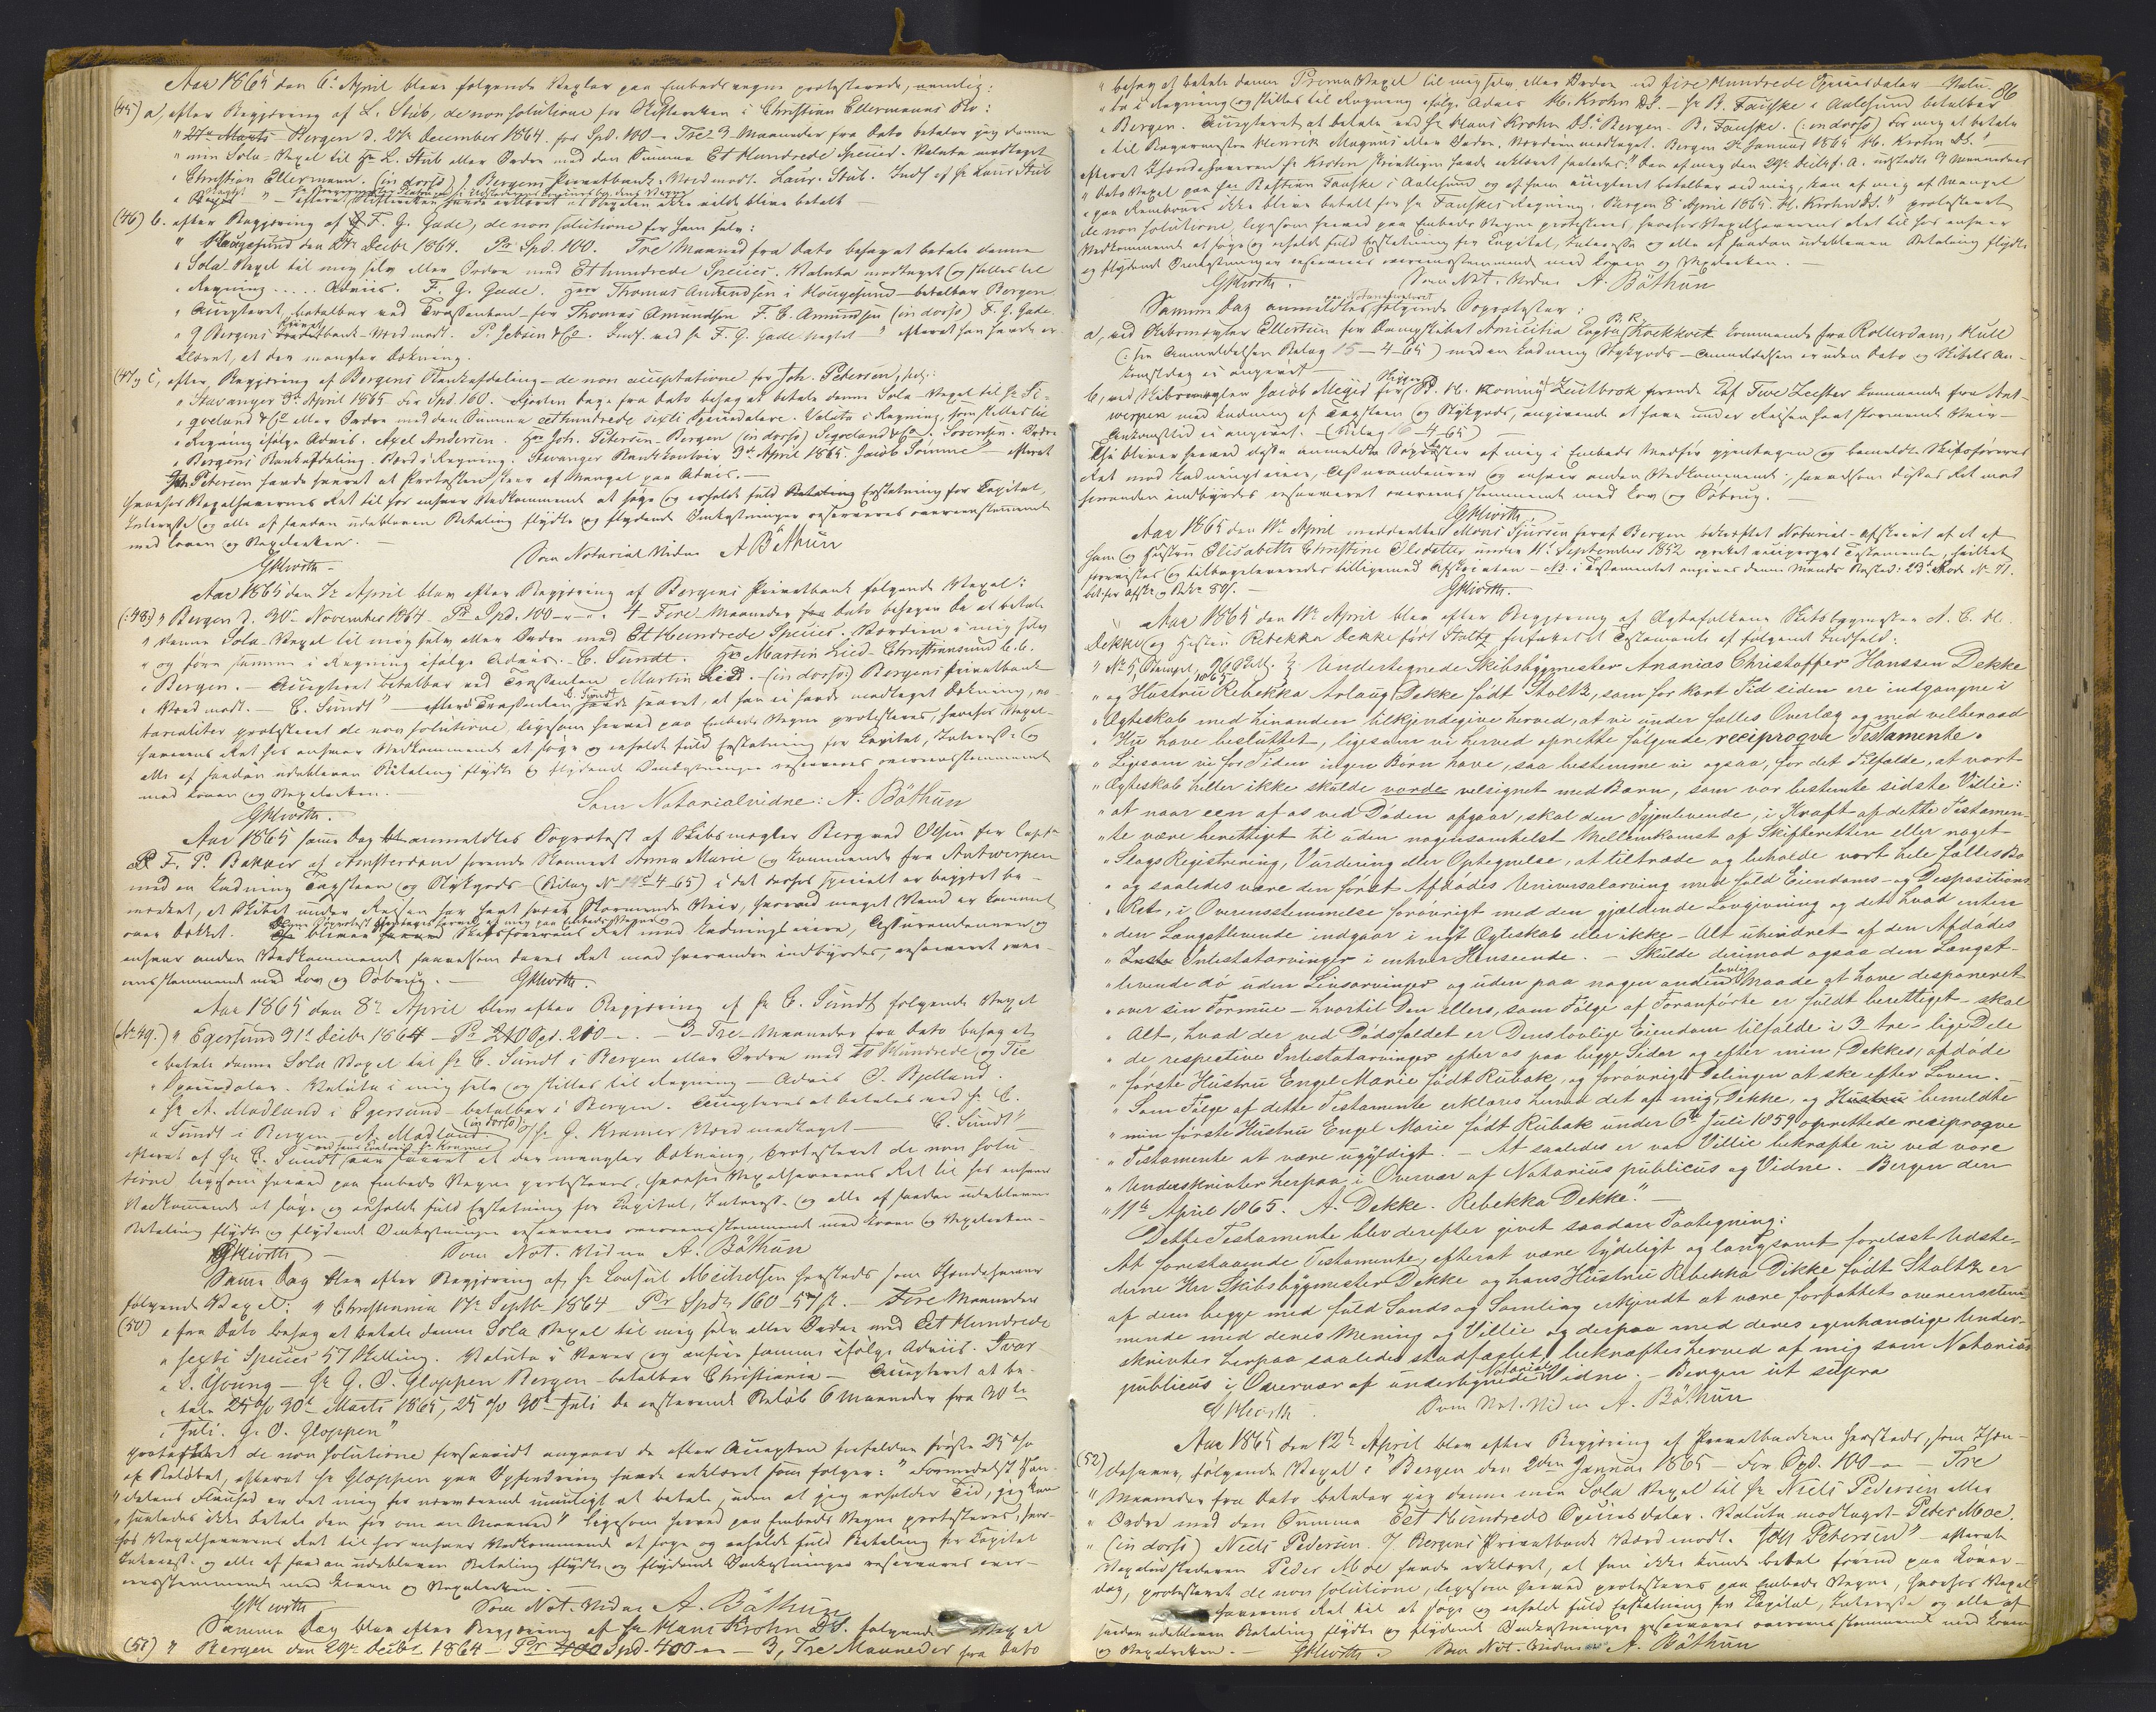 Aar 1865 den 6te April bleve følgende Vexler paa Embedsvegne protesterede, nemlig:
(45) a, efter Begjæring af L. Stub, de non solutione for Skifteretten i Christian Ellermanns Bo:
" Bergen d. 27de December 1864. for Spd. 100 – Tre 3 Maaneder fra Dato betaler jeg denne
" min Sola-Vexel til Hr L. Stub eller Ordre med den Summa Et Hundrede Species. Valuta modtaget
" Christian Ellermann. (in dorso) J Bergens Privatbank. Værd modt. Laur. Stub. Indf af Hr Laur Stub
" efterat Skifteretten havde erklæret at Vexelen ikke vilde blive betalt –
(46) b. efter Begjæring af F. G. Gade, de non solutione for ham selv:
" Haugesund den Decbr 1864. Pr Spd. 100. Tre Maaned fra Dato behag at betale denne
" Sola-Vexel til mig selv eller Ordre med Et hundrede Species. Valuta modtaget og stilles til
" Regning ..... Adviis. F. G. Gade. Herr Thomas Amundsen i Hougesund – betalbar Bergen
" Accepteret, betalbar ved Trassenten – for Thomas Amundsen F. C. Amundsen (in dorso) F. G. Gade
" J Bergens Privatbank – Værd modt. P. Jebsen & Co. Indf. ved Hr F. G. Gade – " efterat han havde er-
klæret, at der mangler Dækning.
(47) c, efter Begjæring af Bergens Bankafdeling – de non acceptatione for Joh. Petersen,
" Stavanger 3die April 1865 For Spd 160. Fjorten Dage fra Dato behag at betale denne Sola-Vexel til Hr Si-
" gveland & Co eller Ordre med den Summa eethundrede sexti Speciesdalere. Valuta i Regning, som stilles til
" Regning ifølge Advis. Axel Andersen. Hr Joh. Petersen – Bergen (in dorso) Sigveland & Co, Sørensen. Ordre
" Bergens Bankafdeling. Værd i Regning. Stavanger Bankkontoir 3die April 1865. Jacob Sømme" – efterat
Joh. Petersen havde svaret at Protesten skeer af Mangel paa Advis. –
hvorhos Vexelhaverens Ret til hos enhver Vedkommende at søge og erholde fuld Erstatning for Capital,
Interesse og alle af saadan udebleven Betaling flydte og flydende Omkostninger reserveres overensstemmende
med Loven og Vexelretten. –
GHiorth – Som Notarial Vidne A Bøthun
Aar 1865 den 7de April blev efter Begjæring af Bergens Privatbank følgende Vexel:
(48) " Bergen d. 30te November 1864 Pr Spd. 100 – " – " 4 – Fire Maaneder fra Dato behager De at betale
" denne Sola-Vexel til mig selv eller Ordre med Et Hundrede Species. Værdien i mig selv
" og føre samme i Regning ifølge Advis. C. Sundt. Hr Martin Lied – Christianssund b. b.
" Bergen. – Accepteret betalbar ved Trassenten Martin Lied. (in dorso) Bergens Privatbank
" Værd modt. – C. Sundt" – efterat Trassenten C. Sundt havde svaret, at han ei havde modtaget Dækning, no-
tarialiter protesteret de non solutione, ligesom herved paa Embeds Vegne protesteres, hvorhos Vexel-
haverens Ret hos enhver Vedkommende at søge og erholde fuld Erstatning for Capital, Interesse og
alle af saadan udebleven Betaling flydte og flydende Omkostninger reserveres overensstemmende
med Loven og Vexelretten. –
GHiorth. Som Notarialvidne: A. Bøthun
Aar 1865 samme Dag anmeldtes Søprotest af Skibsmægler Berg ved Olsen for Capt.
F. P. Bakker af Amsterdam førende Skonnert Anna Marie og kommende fra Antwerpen
med en Ladning Tagsteen og Stykgods – (Bilag No 14 – 4 – 65) i det derhos specielt er begjært be-
mærket, at Skibet under Reisen har havt svært Stormende Veir, hvorved meget Vand er kommet
over Dækket. Skibsførerens Ret mod Ladningseiere, Assurandeurer og
enhver anden Vedkommende saavelsom deres Ret mod hverandre indbyrdes, reserveret over-
ensstemmende med Lov og Søbrug. – GHiorth.
Aar 1865 den 8de April blev efter Begjæring af Hr C. Sundt følgende Vexel
(No 49.) " Egersund 31te Decbr 1864 – Pr Spd. 210 – . – 3 – Tre – Maaneder fra Dato behag at
" betale denne Sola Vexel til Hr C. Sundt i Bergen eller Ordre med To Hundrede og Tie
" Speciesdaler. Valuta i mig selv og stilles til Regning – Advis O. Bjelland.
" Hr A. Madland i Egersund – betalbar i Bergen. Accepteres at betales ved Hr C.
" Sundt i Bergen – A. Madland. (in dorso) Hr G. Kramer Værd modtaget – C. Sundt"
efterat af Hr C. Sundt ved hans Contorist Hr Kramer var svaret at der mangler Dækning, protesteret de non solu-
tione, ligesom herved paa Embeds Vegne protesteres, hvorhos Vexelhaverens Ret til hos enhver
Vedkommende at søge og erholde fuld Erstatning for Capital, Interesse og alle af saadan udebleven
Betaling flydte og flydende Omkostninger reserveres overensstemmende med Loven og Vexelretten –
GHiorth – Som Not. Vidne A. Bøthun
Samme Dag blev efter Begjæring af Hr Consul Michelsen hersteds som Ihændehaver
følgende Vexel: " Christiania 17de Septbr 1864 – Pr Spd 160 – 57 ß. – Fire Maaneder
(50) " fra Dato behag at betale denne Sola Vexel til mig selv eller Ordre med Eet Hundrede
" sexti Species 57 Skilling. Valuta i Varer og anføre samme ifølge Adviis. Ivar
" S. Young – Hr G. O. Gloppen Bergen – betalbar Christiania – Accepteret at be-
" tale 25 % 30te Marts 1865, 25 % 30te Juli de resterende Beløb 6 Maaneder fra 30te
" Juli. G. O. Gloppen"
protesteret de non solutione forsaavidt angaaer de efter Accepten forfaldne første 25 %
af Beløbet, efterat Hr Gloppen paa Opfordring havde erklæret som følger: " Formedelst Han-
" delens Flauhed er det mig for nærværende umuligt at betale, uden at jeg erholder Tid, jeg kan
" saaledes ikke betale den før om en Maaned" ligesom herved paa Embeds Vegne protesteres, hvor-
hos Vexelhaverens Ret til hos enhver Vedkommende at søge og erholde fuld Betaling for Capital
Interesse og alle af saadan udebleven Betaling flydte og flydende Omkostninger reserveres over-
ensstemmende med Loven og Vexelretten. –
GHiorth Som Not. Vidne A. Bøthun
Samme Dag blev efter Begjæring af Hr Hans Krohn DS. følgende Vexel
(51) " Bergen den 29de Decbr 1864 – Pr Spd. 400 – " – 3, Tre Maaneder fra Dato
86
" behag at betale denne Prima Vexel til mig selv eller Ordre med Fire Hundrede Speciesdaler – Valu-
" ta i Regning og stilles til Regning ifølge Advis H. Krohn DS. – Hr B. Fauske i Aalesund betalbar
" Bergen. Accepteret at betale ved Hr Hans Krohn DS. i Bergen. B. Fauske. (: in dorso) For mig at betale
" til Kjøbmand Henrik Magnus eller Ordre, Værdien modtaget. Bergen Januar 1865 H. Krohn DS."
efterat Ihændehaveren Hr Krohn skriftligen havde erklæret saaledes: " Den af mig den 29de Decbr f. A. udstedte 3 Maaneders
" Dato Vexel paa Hr Bastian Fauske i Aalesund og af ham accepteret betalbar ved mig, kan af mig af Mangel
" paa Rembours ikke blive betalt for Hr Fauskes Regning. Bergen 8 April 1865. H. Krohn DS." protesteret
de non solutione, ligesom herved paa Embeds Vegne protesteres, hvorhos Vexelhaverens Ret til hos enhver
Vedkommende at søge og erholde fuld Erstatning for Capital, Interesse og alle af saadan udebleven Betaling flydte
og flydende Omkostninger reserveres overensstemmende med Loven og Vexelretten. –
GHiorth. Som Not. Vidne A. Bøthun
Samme Dag anmeldtes paa Notarialcontoiret følgende Søprotester:
a, ved Skibsmægler Ellertsen for Dampskibet Amicitia Capt. B. R. Koekkoek kommende fra Rotterdam, Hull
(: se Anmeldelsen Bilag 15 – 4 – 65) med en Ladning Stykgods – Anmeldelsen er uden Dato og Skibets An-
komstdag ei angivet –
b, ved Skibsmægler Jacob Meyer for Skipper H. Koning Zuitbrok førende Kof Twe Zusters kommende fra Ant-
werpen med Ladning af Tagsteen og Stykgods, angivende at have under Reisen havt stormende Veir –
Ankomsttid ei angivet. – (Bilag 16 – 4 – 65)
Thi bliver herved disse anmeldte Søprotester af mig i Embeds Medfør gjentagen og bemeldte Skibsføreres
Ret mod Ladningseiere, Assurandeurer og enhver anden Vedkommende, saavelsom disses Ret mod
hverandre indbyrdes reserveret overensstemmende med Lov og Søbrug.
GHiorth
Aar 1865 den 11te April meddeeltes Mons Sjursen heraf Bergen bekræftet Notarial-Afskrivt af et af
ham og Hustru Elisabeth Christine Olsdatter under 11te September 1852 oprettet reciproqve Testamente, hvilket
foreviistes og tilbageleveredes tilligemed Afskrivten – NB. i Testamentet angives denne Mands Bosted: 23de Rode No 71.
GHiorth.
Aar 1865 den 11te April blev efter Begjæring af Ægtefolkene Skibsbygmester A. C. H.
Dekke og Hustru Rebekka Dekke født Stoltz forfattet et Testamente af følgende Indhold:
" No 5, Stempel, 1865. 96 Skill. Undertegnede Skibsbygmester Ananias Christoffer Hanssen Dekke
" og Hustru Rebekka Arlaug Dekke født Stoltz, som for kort Tid siden ere indgangne i
" Ægteskab med hinanden tilkjendegive herved, at vi under fælles Overlæg og med velberaad
" Hu have besluttet, ligesom vi herved oprette følgende reciproqve Testamente.
" Ligesom vi for Tiden ingen Børn have, saa bestemme vi ogsaa, for det Tilfælde, at vort
" Ægteskab heller ikke skulde vorde velsignet med Børn, som vor bestemte sidste Villie:
" at naar een af os ved Døden afgaar, skal den Igjenlevende, i Kraft af dette Testamen-
" te være berettiget til uden nogensomhelst Mellemkomst af Skifteretten eller noget
" Slags Registrering, Vurdering eller Optegnelse, at tiltræde og beholde vort hele fælles Bo
" og saaledes være den først Afdødes Universalarving med fuld Eiendoms- og Dispositions
" Ret, i Overensstemmelse forøvrigt med den gjældende Lovgivning og det hvad enten
" den Længstlevende indgaar i nyt Ægteskab eller ikke – Alt uhindret af den Afdødes
" Intestatarvinger i enhver Henseende. – Skulde derimod ogsaa den Længst-
" levende dø uden Livsarvinger og uden paa nogen anden lovlig Maade at have desponeret
" over sin Formue – hvortil Den ellers, som Følge af Foranførte er fuldt berettiget – skal
" Alt, hvad der ved Dødsfaldet er Denslovlige Eiendom tilfalde i 3 – tre – lige Dele
" de respective Intestatarvinger efter os paa begge Sider og efter min, Dekkes, afdøde
" første Hustru Engel Marie født Rubak, og forøvrigt Delingen at ske efter Loven. –
" Som Følge af dette Testamente erklæres herved det af mig, Dekke, og bemeldte
" min første Hustru Engel Marie født Rubak under 6te Juli 1859 oprettede reciproqve
" Testamente at være ugyldigt. – At saaledes er vor Villie bekræfte vi ved vore
" Underskrivter herpaa i Overvær af Notarius publicus og Vidne. – Bergen den
" 11te April 1865. A. Dekke. Rebekka Dekke." –
Dette Testamente blev derefter givet saadan Paategning:
At forestaaende Testamente, efterat være tydeligt og langsomt forelæst Udste-
derne Hr Skibsbygmester Dekke og hans Hustru Rebekka Dekke født Stoltz er
af dem begge med fuld Sands og Samling erkjendt at være forfattet overensstem-
mende med deres Mening og Villie og derpaa med deres egenhændige Under-
skrivter herpaa saaledes stadfæstet, bekræftes herved af mig som Notarius
publicus i Overvær af undertegnede Notarial Vidne. – Bergen ut supra
GHiorth. Som Not. Vidne A. Bøthun
Aar 1865 den 12te April blev efter Begjæring af Privatbanken hersteds, som Ihæn-
(52) dehaver, følgende Vexel: " Bergen den 2den Januar 1865 – For Spd. 100 – " – Tre
" Maaneder fra Dato betaler jeg denne min Sola Vexel til Hr Niels Pedersen eller
" Ordre med den Summa Eet Hundrede Speciesdaler. Valuta modtaget – Peder Moe.
" (in dorso) Niels Pedersen. J Bergens Privatbank Værd modt. Joh Petersen" – efterat
Vexeludstederen Peder Moe havde erklæret, at han ikke kunde betale førend paa Løver-
dag, protesteret de non solutione, ligesom herved protesteres paa Embeds Vegne, hvorhos Vexel
haverens Ret til at søge og erholde fuld Erstatning for Capital, Interesse og alle af
saadan udebleven Betaling flydte og flydende Omkostninger reserveres overensstemmende med Loven
og Vexelretten. – GHiorth. Som Not. Vidne A. Bøthun